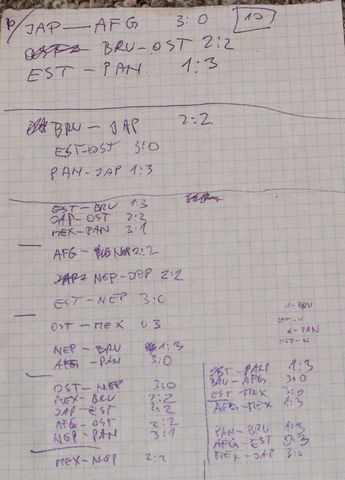 JAP—AFG 3:0 10
BRU-OST 2:2
EST-PAN 1:3
BRU-JAP 2:2
EST-OST 3:0
PAN-JAP 1:3
EST-BRU 1:3
JAP-OST 2:2
MEX-PAN 3:1
AFG- NEP 2:2
NEP-JAP 2:2
EST-NEP 3:0
OST-MEX 0:3
NEP-BRU 1:3
AFG-PAN 3:0
OST-NEP 3:0
MEX-BRU 2:2
JAP-EST 2:2
AFG-OST 2:2
NEP-PAN 3:1
MEX-NEP 2:2
-BRU
-PAN
OST-PAN 1:3
BRU-AFG 3:0
EST-MEX 3:0
AFG-MEX 1:3
PAN-BRU 1:3
AFG-EST 0:3
MEX-JAP 3:0